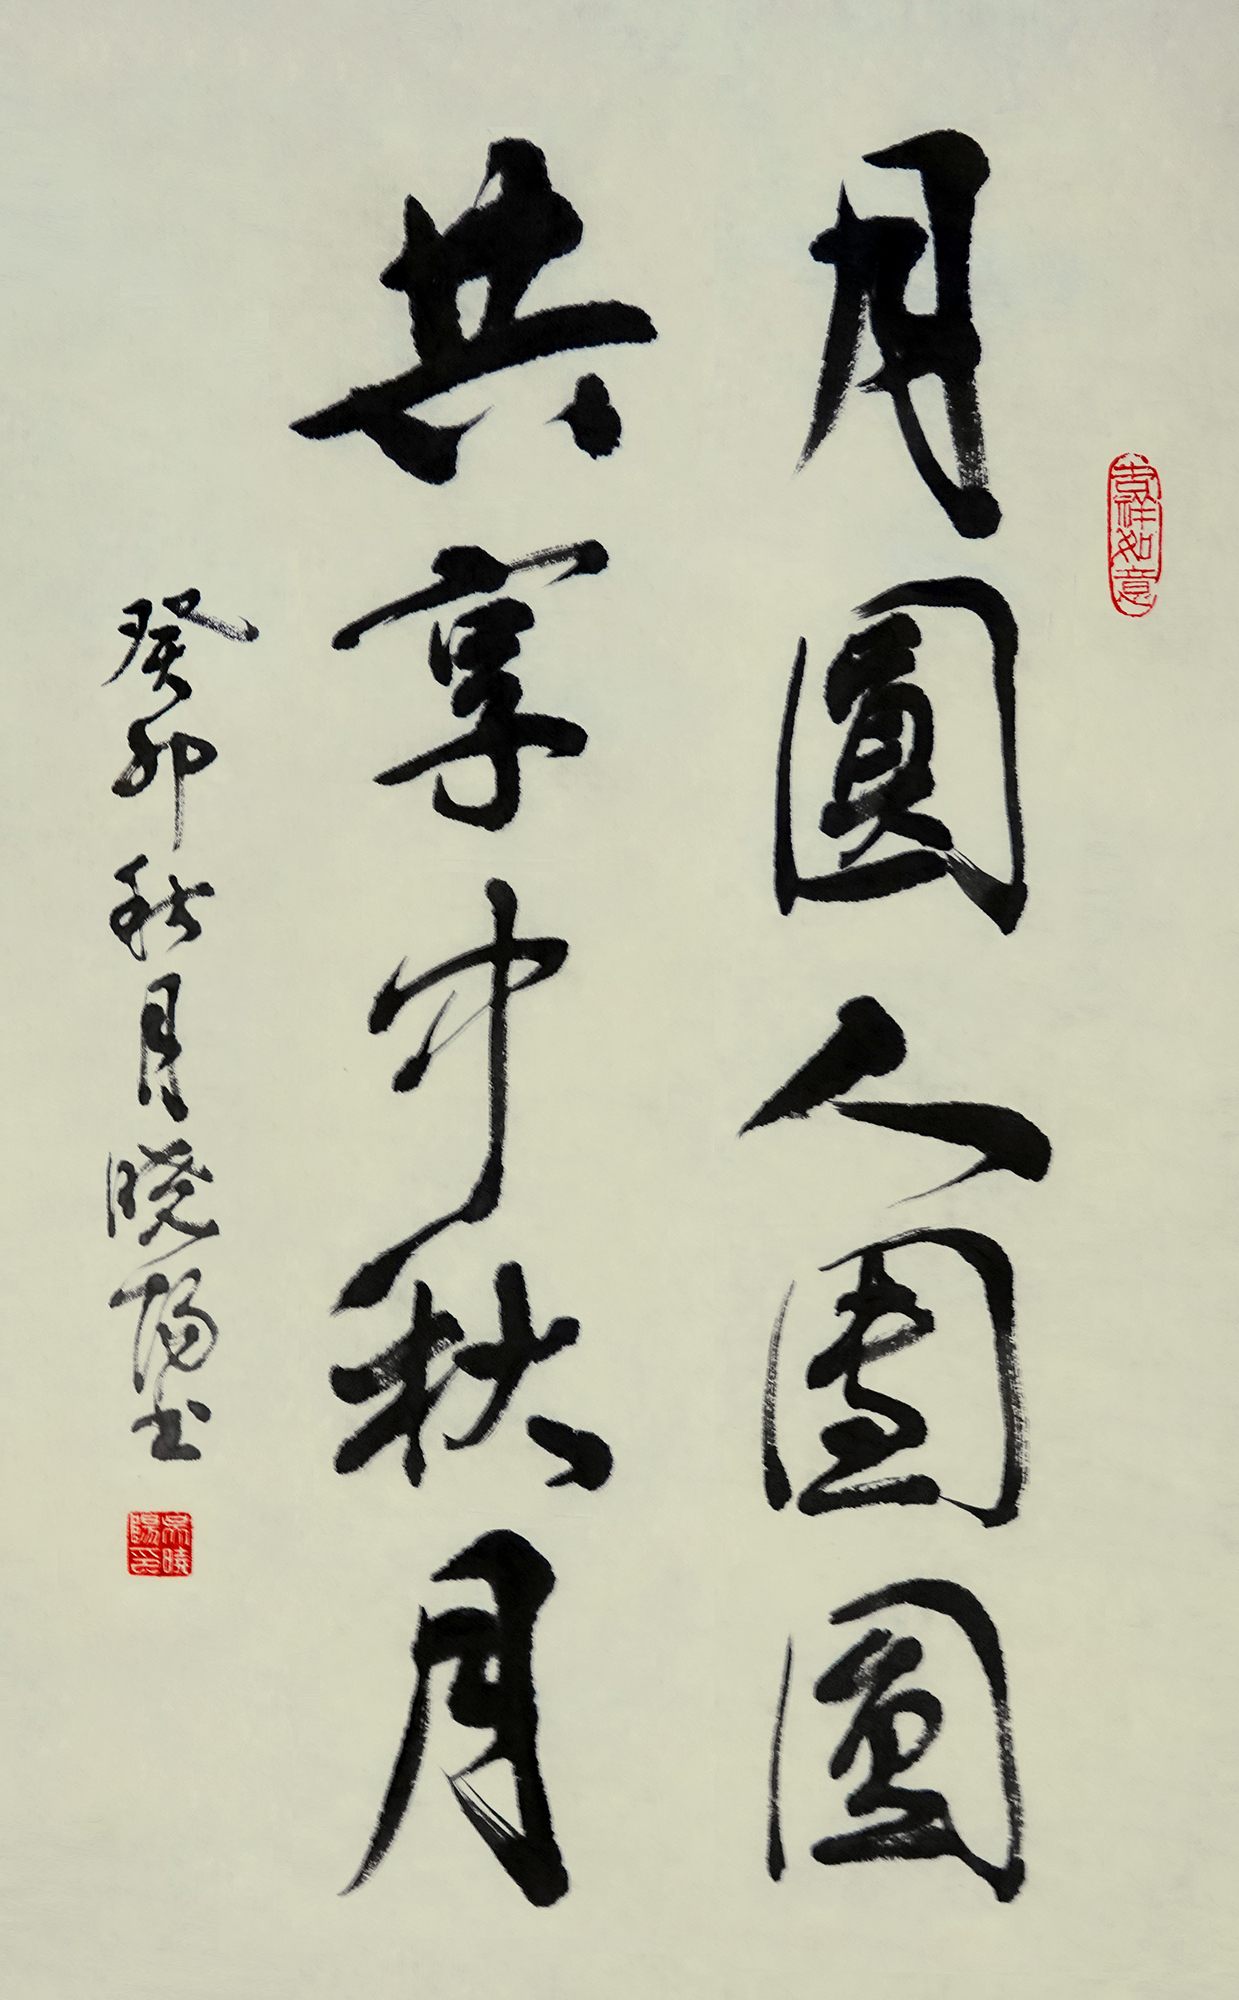 吉祥如意
月圓人團圓
共享中秋月
癸卯秋月曉陽书
吴曉陽印